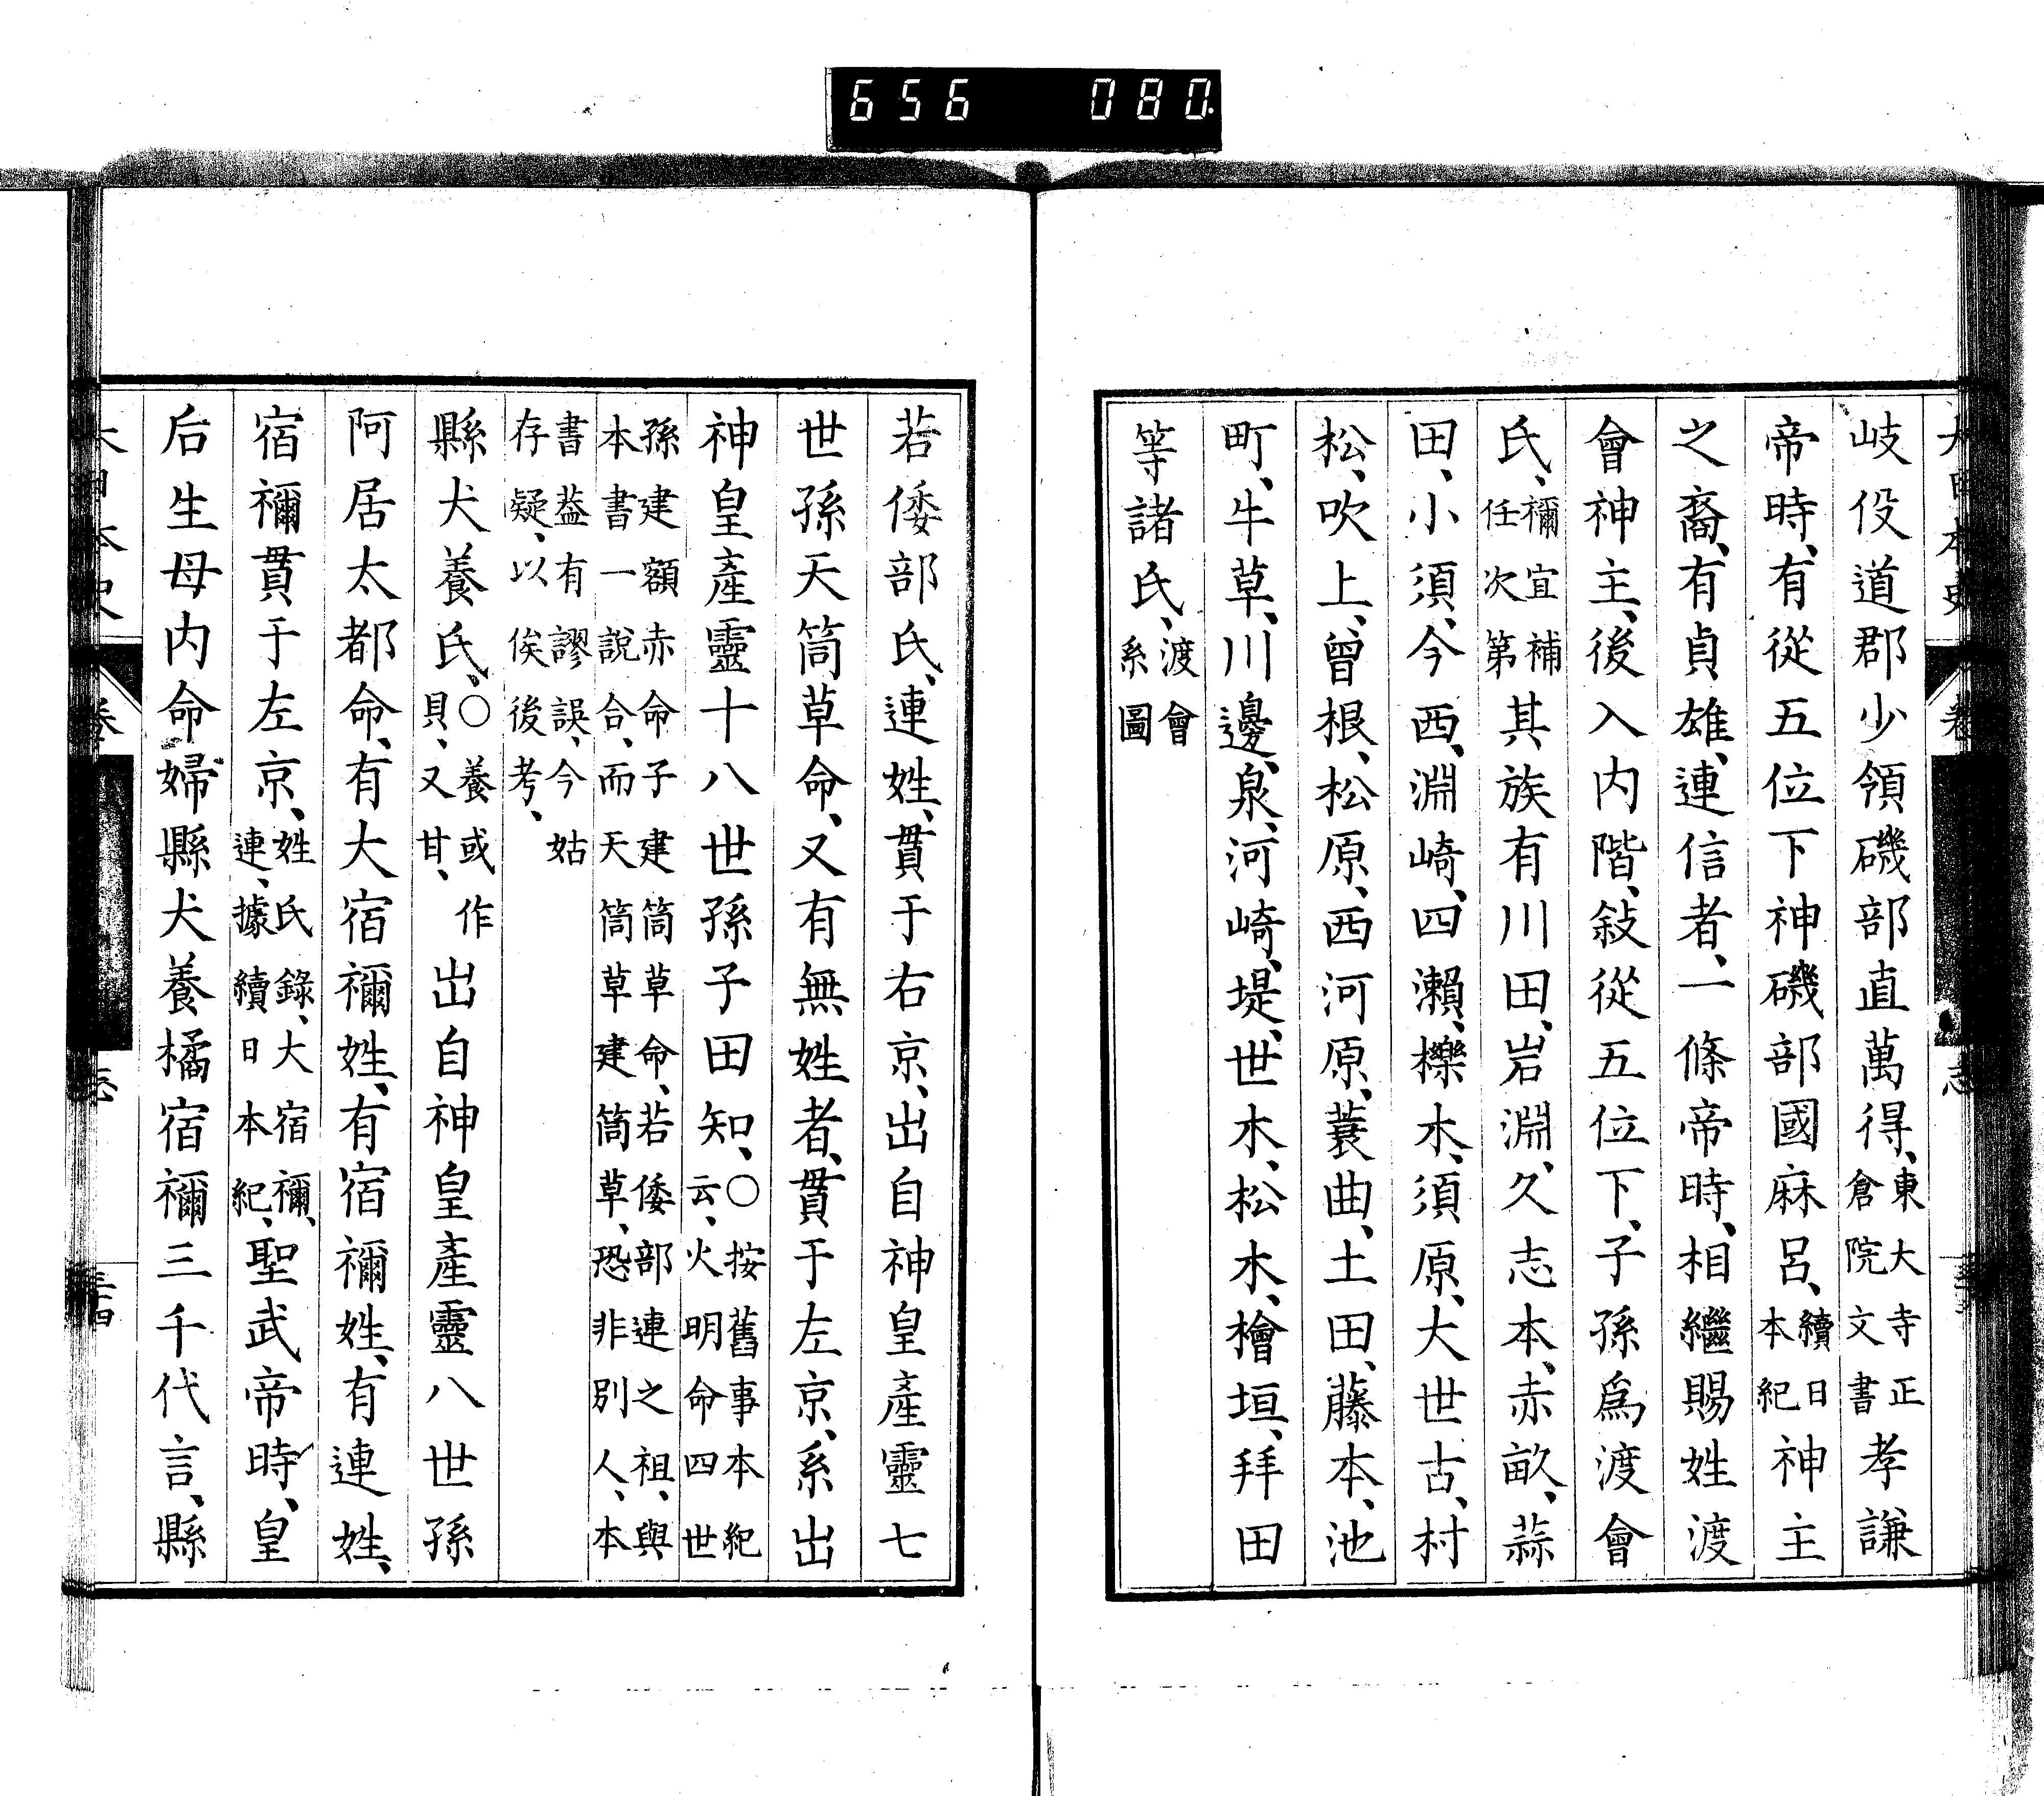 656 080
大日本史 卷 志
岐伇道郡少領磯部直萬得、東大寺正倉院文書孝謙
帝時、有從五位下神磯部國麻呂、續日本紀神主
之裔、有貞雄、連信者、一條帝時、相繼賜姓渡
會神主、後入内階、敍從五位下、子孫爲渡會
氏、禰宜補任次第其族有川田、岩淵、久志本、赤畝、蒜
田、小須、今西、淵崎、四瀨、櫟木、須原、大世古、村
松、吹上、曾根、松原、西河原、蓑曲、土田、藤本、池
町、牛草、川邊、泉、河崎、堤、世木、松木、檜垣、拜田
等諸氏、渡會系圖
若倭部氏、連姓、貫于右京、出自神皇產靈七
世孫天筒草命、又有無姓者、貫于左京、系出
神皇產靈十八世孫子田知、○按舊事本紀云、火明命四世
孫建額赤命子建筒草命、若倭部連之祖、與本書一說合、而天筒草建筒草、恐非別人、本
書葢有謬誤、今姑存疑、以俟後考、
縣犬養氏、○養或作貝、又甘、出自神皇產靈八世孫
阿居太都命、有大宿禰姓、有宿禰姓、有連姓、
宿禰貫于左京、姓氏錄、大宿禰、連、據續日本紀、聖武帝時、皇
后生母内命婦縣犬養橘宿禰三千代言、縣
大日本史 卷 志 三十四